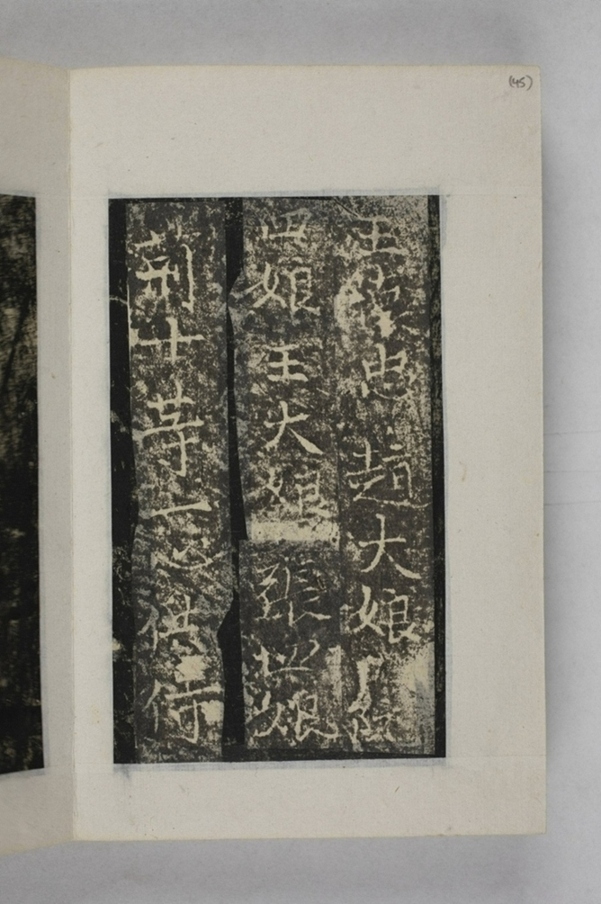 (45)
王 忠趙大娘
四娘王大娘張 娘
荊十 等一心供侍